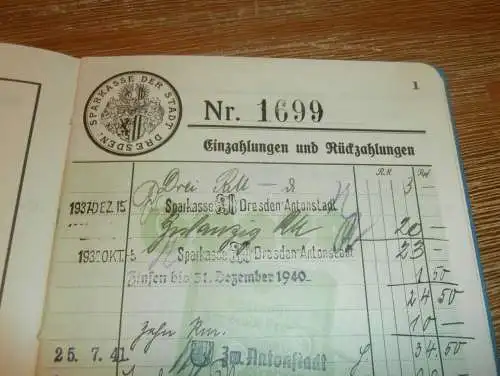 1
SPARKASSE DER STADT DRESDEN
Nr. 1699
Einzahlungen und Rückzahlungen
R.M. Rpf.
Drei RM 3 –
1937 DEZ. 15 Sparkasse Dresden Antonstadt
Zwanzig RM 20 –
OKT. -5 Sparkasse Dresden Antonstadt 23 –
Zinsen bis 31. Dezember 1940 1 50
24 50
Zehn Rm. 10 –
25. 7. 41 Zw. Antonstadt 34 50